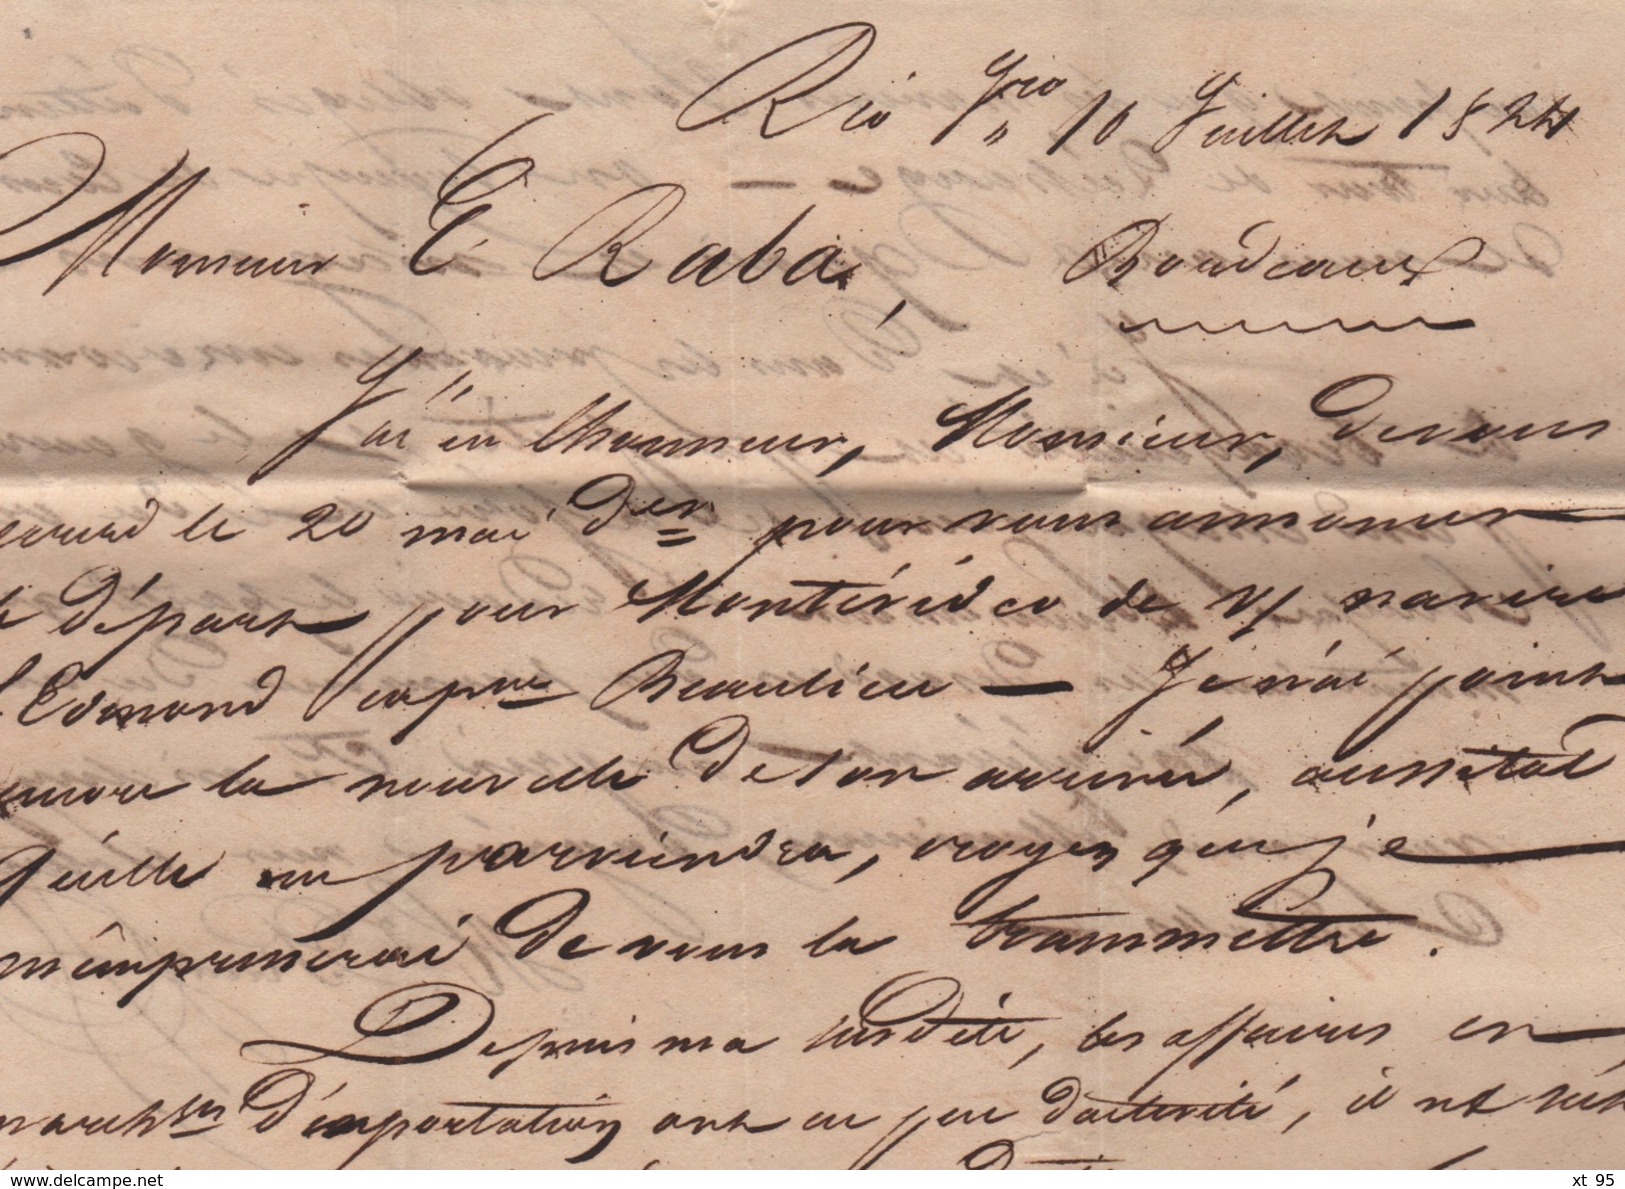 Rio Jro 10 Juillet 1844
Monsieur E Raba, Bordeaux
J'ai eu lhonneur, Monsieur, de vous
le 20 mai der pour vous annoncer
départ pour Montévidéo de v/ navire
l'Edmond capne Beaulieu — Je n'ai point
encore la nouvelle de son arrivée, aussitot
qu'elle me parviendra, croyez que je
m'empresserai de vous la transmettre.
Depuis ma susdite, les affaires en
marchses d'exportation ont eu peu d'activité, il ne s'est
www.delcampe.net xt 95